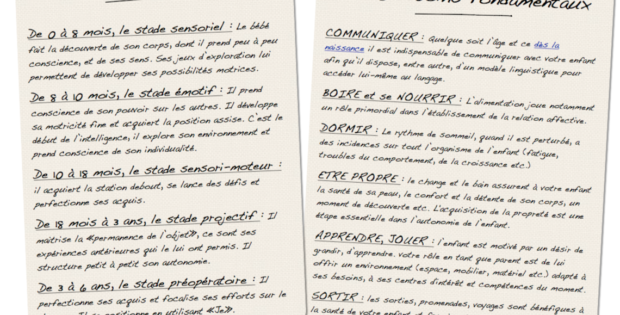 De 0 à 8 mois, le stade sensoriel : Le bébé
fait la découverte de son corps, dont il prend peu à peu
conscience, et de ses sens. Ses jeux d'exploration lui
permettent de développer ses possibilités motrices.
De 8 à 10 mois, le stade émotif : Il prend
conscience de son pouvoir sur les autres. Il développe
sa motricité fine et acquiert la position assise. C'est le
début de l'intelligence, il explore son environnement et
prend conscience de son individualité.
De 10 à 18 mois, le stade sensori-moteur :
il acquiert la station debout, se lance des défis et
perfectionne ses acquis.
De 18 mois à 3 ans, le stade projectif : Il
maîtrise la «permanence de l'objet», ce sont ses
expériences antérieures qui le lui ont permis. Il
structure petit à petit son autonomie.
De 3 à 6 ans, le stade préopératoire : Il
perfectionne ses acquis et focalise ses efforts sur le
en utilisant «Je».
fondamentaux
COMMUNIQUER : Quelque soit l'âge et ce dès la
naissance il est indispensable de communiquer avec votre enfant
afin qu'il dispose, entre autre, d'un modèle linguistique pour
accéder lui-même au langage.
BOIRE et se NOURRIR : L'alimentation joue notamment
un rôle primordial dans l'établissement de la relation affective.
DORMIR : Le rythme de sommeil, quand il est perturbé, a
des incidences sur tout l'organisme de l'enfant (fatigue,
troubles du comportement, de la croissance etc.)
ETRE PROPRE : le change et le bain assurent à votre enfant
la santé de sa peau, le confort et la détente de son corps, un
moment de découverte etc. L'acquisition de la propreté est une
étape essentielle dans l'autonomie de l'enfant.
APPRENDRE, JOUER : l'enfant est motivé par un désir de
grandir, d'apprendre. votre rôle en tant que parent est de lui
offrir un environnement (espace, mobilier, matériel etc.) adapté à
ses besoins, à ses centres d'intérêt et compétences du moment.
SORTIR : les sorties, promenades, voyages sont bénéfiques à
la santé de votre enfant